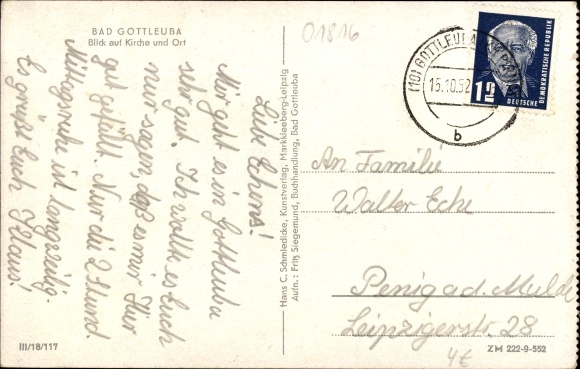 BAD GOTTLEUBA
Blick auf Kirche und Ort
01816
(10) GOTTLEUBA
15.10.52
b
12
DEUTSCHE
DEMOKRATISCHE REPUBLIK
Liebe
Mir geht es in Gottleuba
ser gut. Ich wollte es Euch
nur sagen, daß es mir hier
gut gefällt. Nur die 2 Stund.
Mittagsruhe ist langweilig.
Es grüßt Euch Klaus!
Hans C. Schmiedicke, Kunstverlag, Markkleeberg-Leipzig
Aufn.: Fritz Siegemund, Buchhandlung, Bad Gottleuba
An Familie
Walter
Penig a d. Mulde
Leipzigerstr. 28
4€
III/18/117
ZM 222-9-552